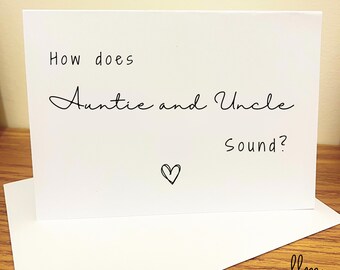 How does
Auntie and Uncle
Sound?